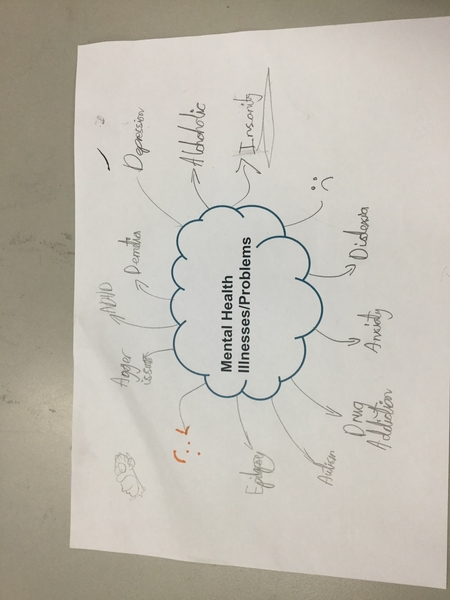 Depression
Alchoholic
Insanity
Demetia
ADHD
Anger
issues
Mental Health
Illnesses/Problems
Dislexia
Anxity
Drug
Addiction
Autism
Epilepsy